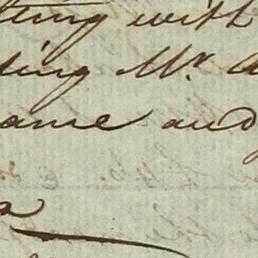 ting with
ting Mr. A
ame and
a